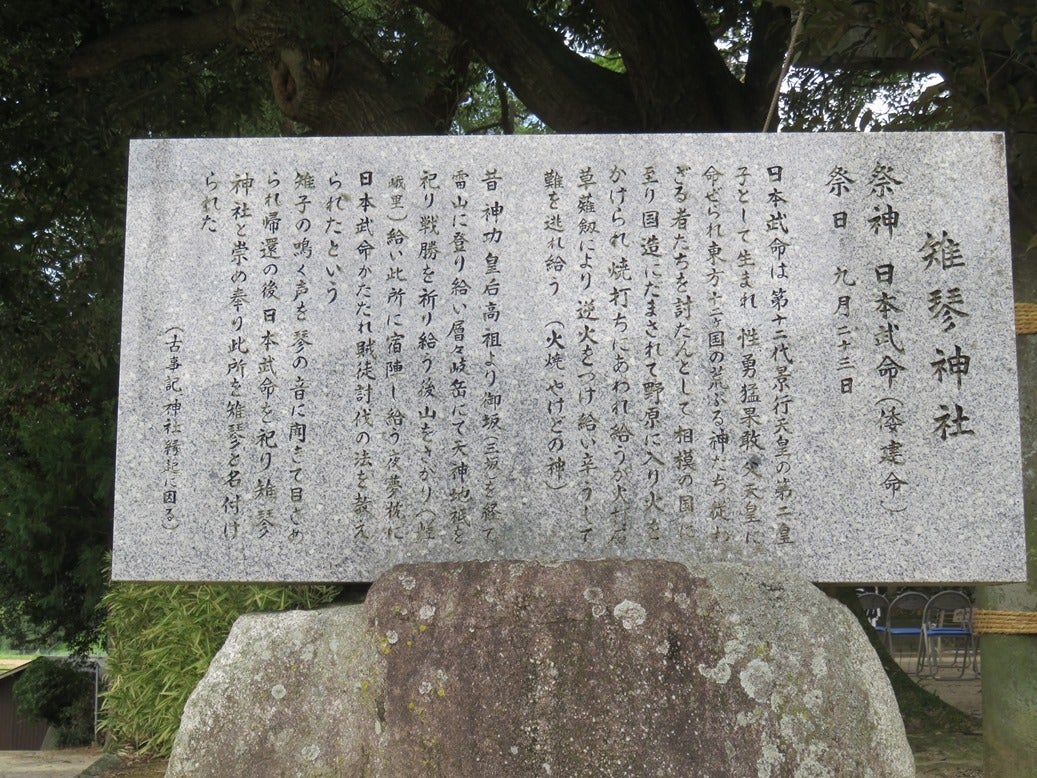 雉琴神社
祭神 日本武命(倭建命)
祭日 九月二十三日
日本武命は第十二代景行天皇の第二皇
子として生まれ 性勇猛果敢 父天皇に
命ぜられ東方十二ヶ国の荒ぶる神たち従わ
ざる者たちを討たんとして相模の国に
至り国造にだまされて野原に入り火を
かけられ焼打ちにあわれ給うが火打石
草薙剱により逆火をつけ給い辛うして
難を逃れ給う (火焼やけどの神)
昔神功皇后高祖より御坂(三坂)を経て
雷山に登り給い層々岐岳にて天神地祇を
祀り戦勝を祈り給う後山をさかり(怪
我里)給い此所に宿陣し給う夜夢枕に
日本武命かたたれ賊徒討伐の法を教え
られたという
雉子の鳴く声を琴の音に聞きて目さめ
られ帰還の後日本武命を祀り雉琴
神社と崇め奉り此所を雉琴と名付け
られた
(古事記神社縁起に因る)